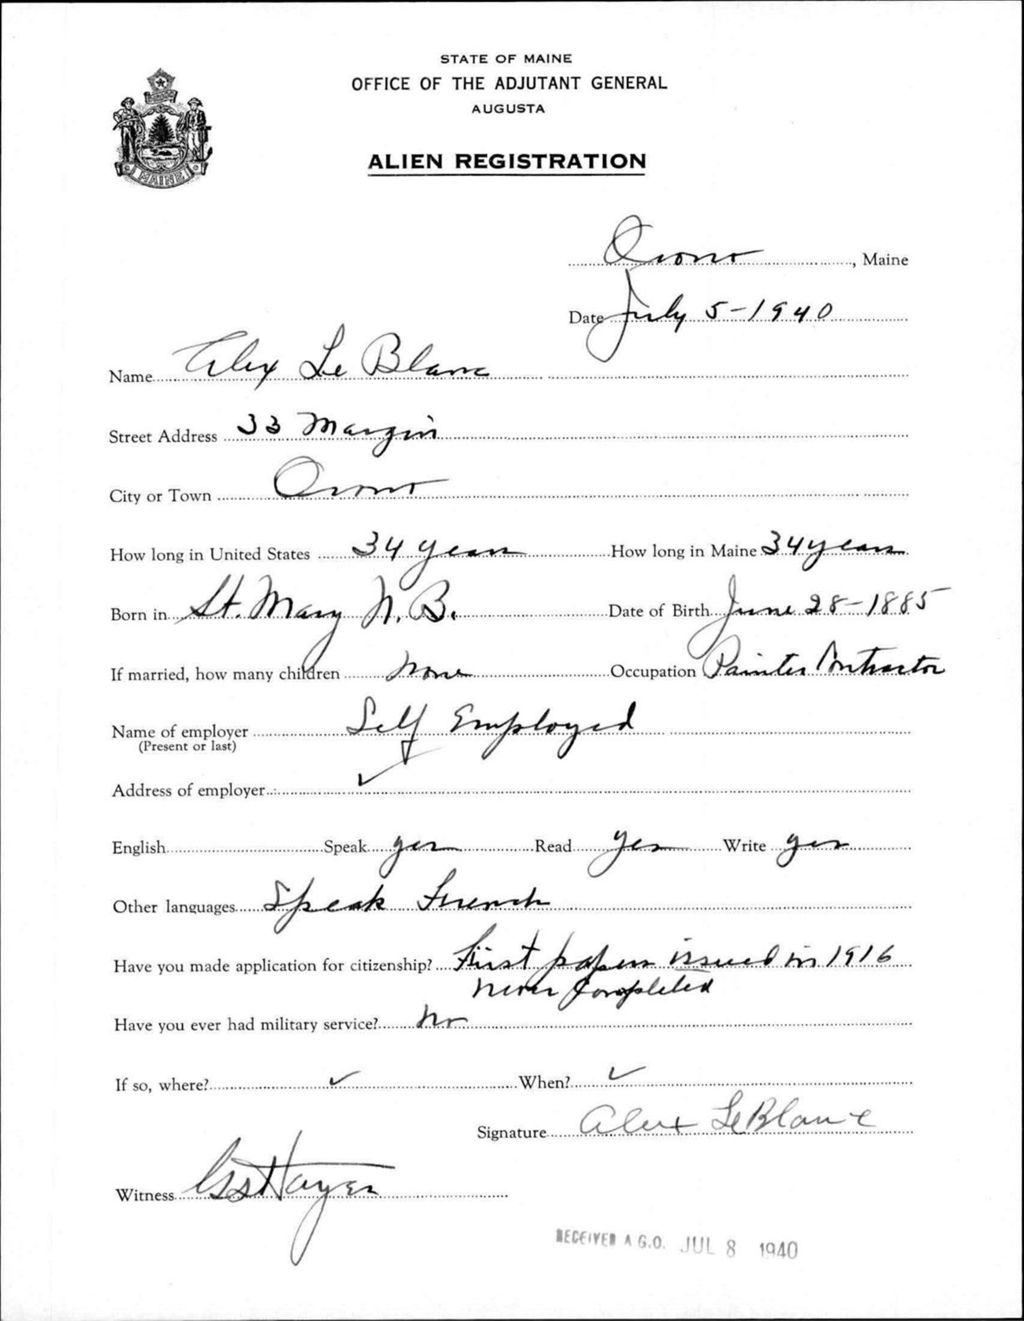 STATE OF MAINE
OFFICE OF THE ADJUTANT GENERAL
AUGUSTA
MAINE
ALIEN REGISTRATION
Orono, Maine
Date July 5-1940
Name Alex Le Blanc
Street Address 33 Margin
City or Town Orono
How long in United States 34 years How long in Maine 34 years
Born in St. Mary N. B. Date of Birth June 28-1885
If married, how many children None Occupation Painter Contractor
Name of employer Self Employed
(Present or last)
Address of employer ✓
English Speak yes Read yes Write yes
Other languages Speak French
Have you made application for citizenship? First papers issued in 1916
never completed
Have you ever had military service? No
If so, where? ✓ When? ✓
Signature Alex LeBlanc
Witness
RECEIVED A.G.O. JUL 8 1940